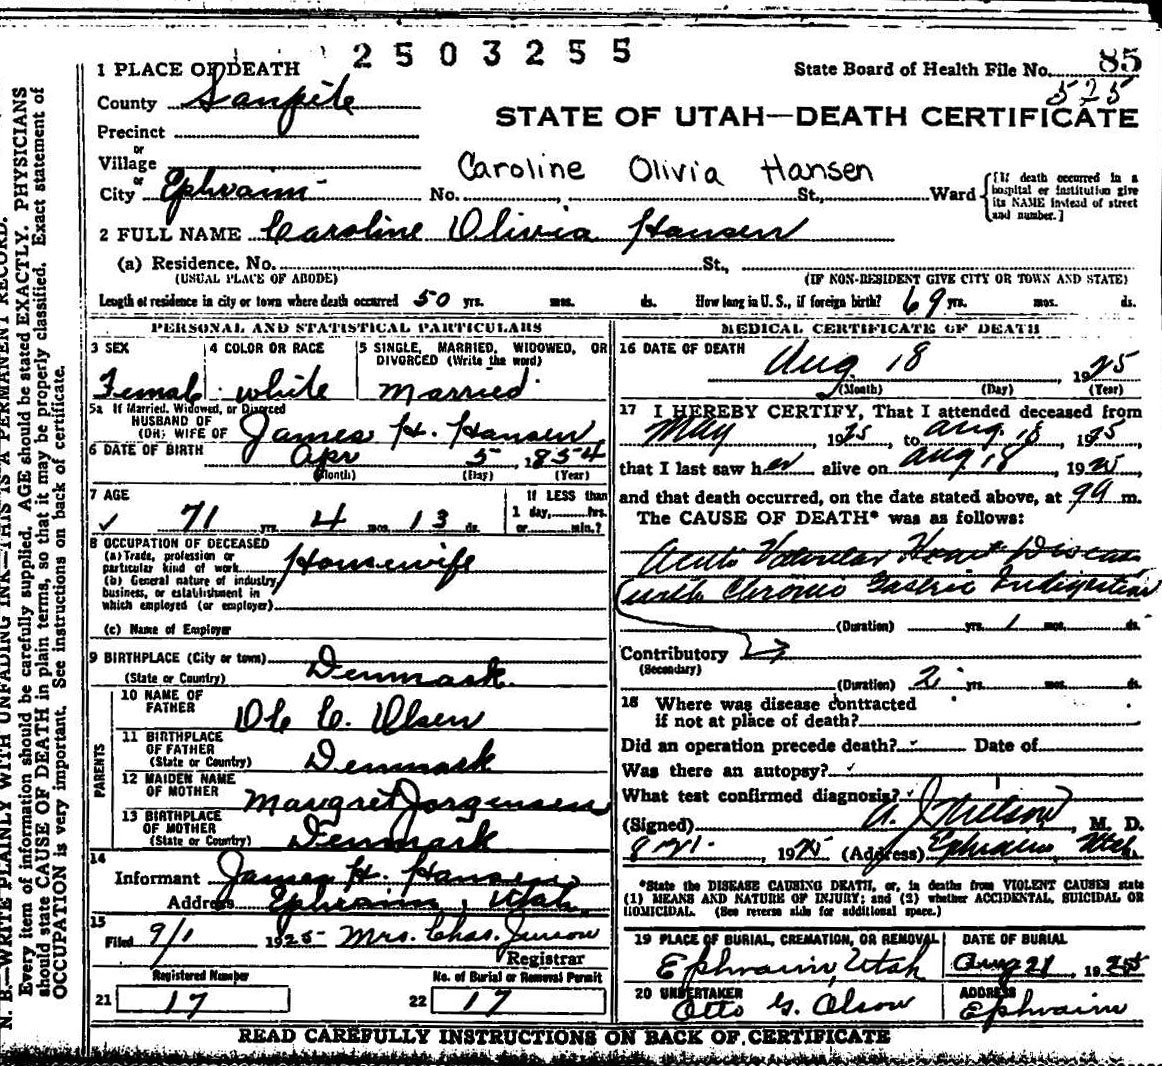 2503255
1 PLACE OF DEATH
State Board of Health File No. 85
575
County Sanpete
STATE OF UTAH—DEATH CERTIFICATE
Precinct
or
Village
Caroline Olivia Hansen
or
City Ephraim No. St., Ward
[If death occurred in a hospital or institution give its NAME instead of street and number.]
2 FULL NAME Caroline Olivia Hansen
(a) Residence. No. St.,
(USUAL PLACE OF ABODE) (IF NON-RESIDENT GIVE CITY OR TOWN AND STATE)
Length of residence in city or town where death occurred 50 yrs. mos. ds. How long in U. S., if foreign birth? 69 yrs. mos. ds.
PERSONAL AND STATISTICAL PARTICULARS
3 SEX
Female
4 COLOR OR RACE
white
5 SINGLE, MARRIED, WIDOWED, OR DIVORCED (Write the word)
Married
5a If Married, Widowed, or Divorced
HUSBAND OF
(OR) WIFE OF James H. Hansen
6 DATE OF BIRTH Apr 5 1854
(Month) (Day) (Year)
7 AGE
71 yrs. 4 mos. 13 ds.
If LESS than
1 day,......hrs.
or......min.?
8 OCCUPATION OF DECEASED
(a) Trade, profession or
particular kind of work Housewife
(b) General nature of industry
business, or establishment in
which employed (or employer)
(c) Name of Employer
9 BIRTHPLACE (City or town)
(State or Country) Denmark.
PARENTS
10 NAME OF
FATHER Ole C. Olsen
11 BIRTHPLACE
OF FATHER
(State or Country) Denmark
12 MAIDEN NAME
OF MOTHER Margret Jorgensen
13 BIRTHPLACE
OF MOTHER
(State or Country) Denmark
14
Informant James H. Hansen
Address Ephraim, Utah
15
Filed 9/1 1925 Mrs. Chas. Jenson
Registrar
Registered Number No. of Burial or Removal Permit
21 17 22 17
MEDICAL CERTIFICATE OF DEATH
16 DATE OF DEATH
Aug 18 1925
(Month) (Day) (Year)
17 I HEREBY CERTIFY, That I attended deceased from
May 1925 to Aug. 18 1925
that I last saw her alive on Aug 18 1925
and that death occurred, on the date stated above, at m.
The CAUSE OF DEATH* was as follows:
Acute Valvular Heart Disease
with Chronic Gastric Indigestion
(Duration) yrs. 1 mos. ds.
Contributory
(Secondary)
(Duration) 2 yrs. mos. ds.
18 Where was disease contracted
if not at place of death?
Did an operation precede death? Date of
Was there an autopsy?
What test confirmed diagnosis?
(Signed) A. J. Nielson, M. D.
8 21, 1925 (Address) Ephraim, Utah
*State the DISEASE CAUSING DEATH, or, in deaths from VIOLENT CAUSES state
(1) MEANS AND NATURE OF INJURY; and (2) whether ACCIDENTAL, SUICIDAL OR
HOMICIDAL. (See reverse side for additional space.)
19 PLACE OF BURIAL, CREMATION, OR REMOVAL
Ephraim, Utah
DATE OF BURIAL
Aug 21 1925
20 UNDERTAKER
Otto G. Olson
ADDRESS
Ephraim
READ CAREFULLY INSTRUCTIONS ON BACK OF CERTIFICATE
N. B.—WRITE PLAINLY WITH UNFADING INK—THIS IS A PERMANENT RECORD.
Every item of information should be carefully supplied. AGE should be stated EXACTLY. PHYSICIANS
should state CAUSE OF DEATH in plain terms, so that it may be properly classified. Exact statement of
OCCUPATION is very important. See instructions on back of certificate.